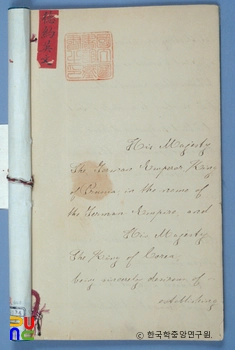 His Majesty
The German Emperor King
of Prussia in the name of
the German Empire, and
His Majesty
The King of Corea
being sincerely desirous of
establishing
© 한국학중앙연구원